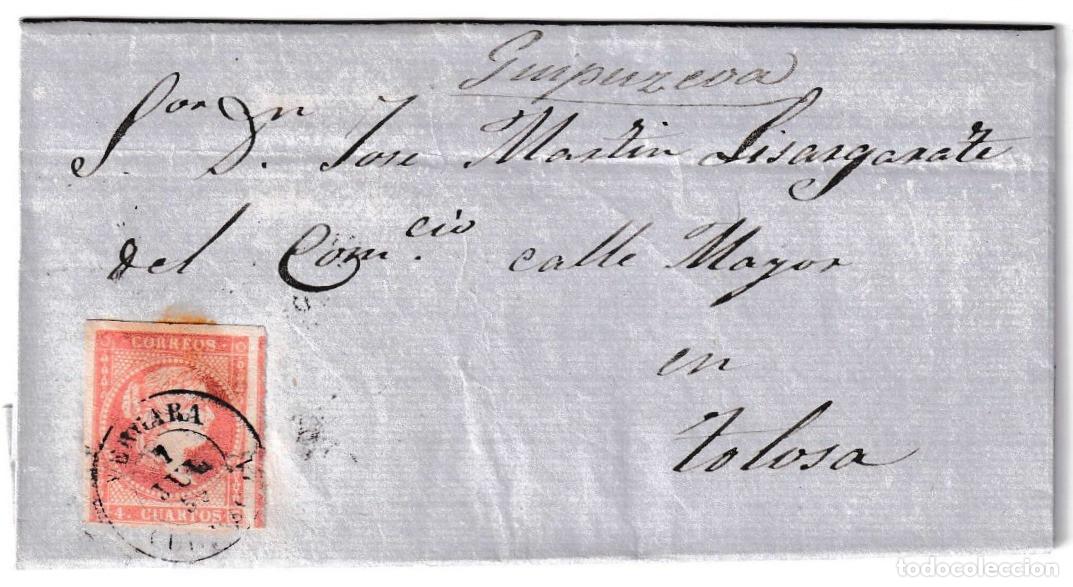 Guipuzcoa
S.or Dn
D. Jose Martin Lisargarate
del Com.cio calle Mayor
en
Tolosa
CORREOS
VERGARA
7
JUL
4. CUARTOS
todocoleccion